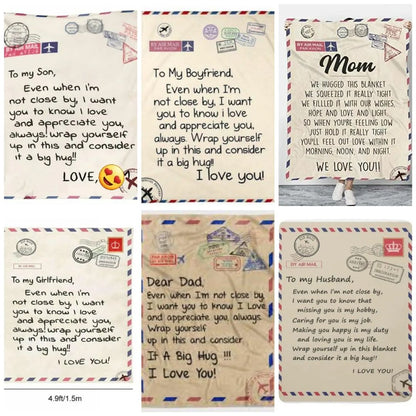 BY AIR MAIL
PAR AVION
To my Son,
Even when I'm
not close by, I want
you to know i love
and appreciate you,
always! wrap yourself
up in this and consider
it a big hug!!
LOVE,
BY AIR MAIL
PAR AVION
To My Boyfriend,
Even when I'm
not close by, I want
you to know i love
and appreciate you,
always. Wrap yourself
up in this and consider
it a big hug!!
I love you!
BY AIR MAIL
Mom
WE HUGGED THIS BLANKET
WE SQUEEZED IT REALLY TIGHT
WE FILLED IT WITH OUR WISHES,
HOPE AND LOVE AND LIGHT.
SO WHEN YOU'RE FEELING LOW
JUST HOLD IT REALLY TIGHT
YOU'LL FEEL OUR LOVE WITHIN IT
MORNING, NOON, AND NIGHT.
WE LOVE YOU!
BY AIR MAIL
To my Girlfriend,
Even when I'm not
close by, I want
you to know I love
and appreciate you,
always! wrap yourself
up in this and consider
it a big hug!!
I LOVE YOU!
4.9ft/1.5m
Dear Dad,
Even when I'm not close by,
I want you to know I Love
And appreciate you, always.
Wrap yourself
up in this and consider
it
A Big Hug !!!
I Love You!
BY AIR MAIL
To my Husband,
Even when I'm not close by,
I want you to know that
missing you is my hobby,
Caring for you is my job.
Making you happy is my duty
and loving you is my life.
Wrap yourself up in this blanket
and consider it a big hug!!
I LOVE YOU!